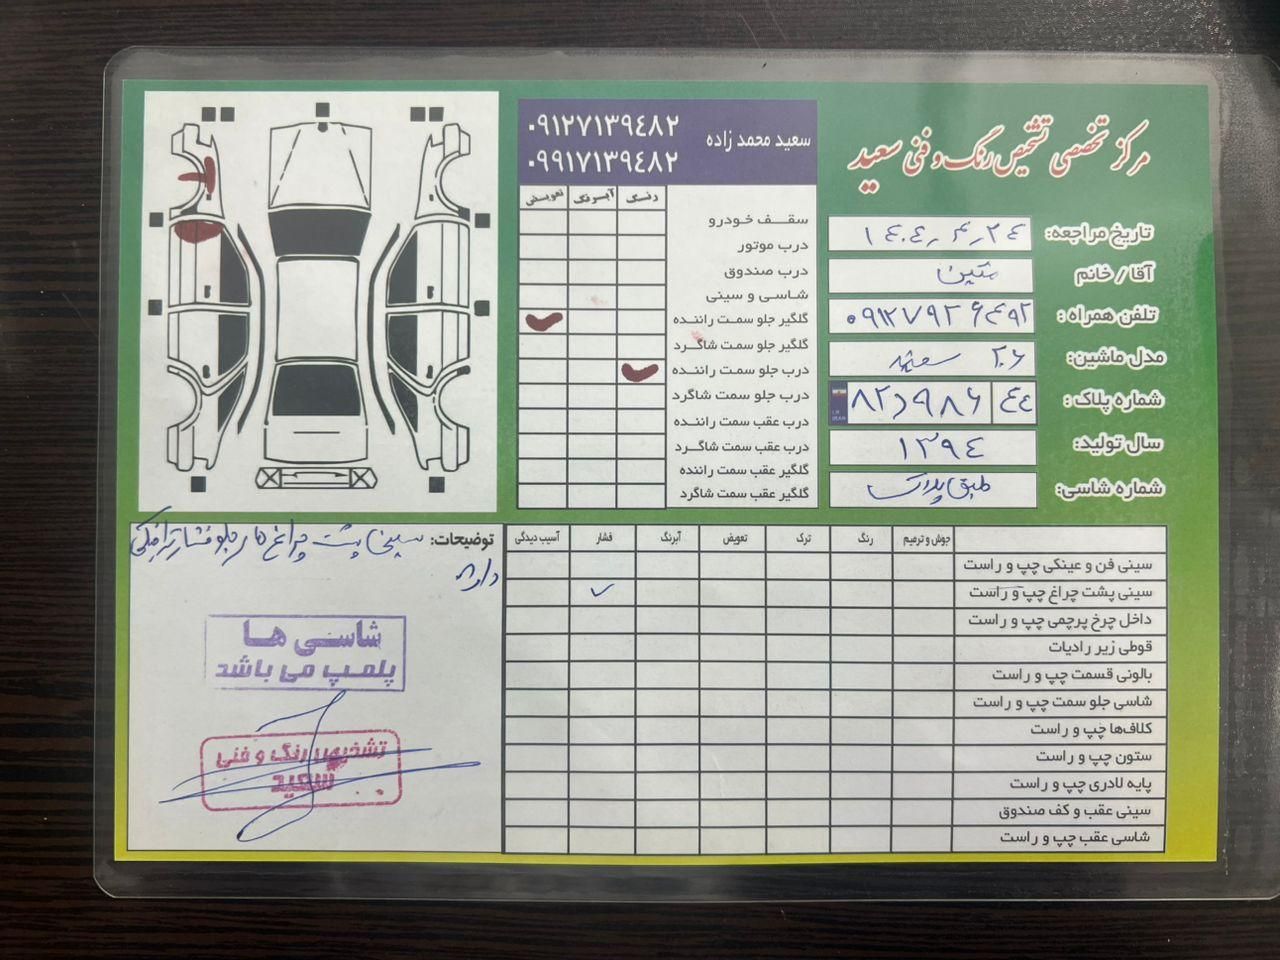 مرکز تخصصی تشخیص رنگ و فنی سعید
تاریخ مراجعه: ۱۴۰۴٫۴٫۲۴
آقا / خانم متین
تلفن همراه : ۰۹۱۲۷۹۲۶۴۹۲
مدل ماشین: ۲۰۶ سفید
شماره پلاک : ۴۴ ۹۸۶ د ۸۲
I.R.
IRAN
سال تولید: ۱۳۹۴
شماره شاسی: طبق پلاک
سعید محمد زاده
۰۹۱۲۷۱۳۹٤۸۲
۰۹۹۱۷۱۳۹٤۸۲
رنگ آبرنگ تعویض
سقف خودرو
درب موتور
درب صندوق
شاسی و سینی
گلگیر جلو سمت راننده
گلگیر جلو سمت شاگرد
درب جلو سمت راننده
درب جلو سمت شاگرد
درب عقب سمت راننده
درب عقب سمت شاگرد
گلگیر عقب سمت راننده
گلگیر عقب سمت شاگرد
ت
جوش و ترمیم رنگ ترک تعویض آبرنگ فشار آسیب دیدگی
سینی فن و عینکی چپ و راست
سینی پشت چراغ چپ و راست
داخل چرخ پرچمی چپ و راست
قوطی زیر رادیات
بالونی قسمت چپ و راست
شاسی جلو سمت چپ و راست
کلاف‌ها چپ و راست
ستون چپ و راست
پایه لادری چپ و راست
سینی عقب و کف صندوق
شاسی عقب چپ و راست
توضیحات: سینی پشت چراغ ها در جلو فشار ترافیکی
دارد
شاسی ها
پلمپ می باشد
تشخیص رنگ و فنی
سعید